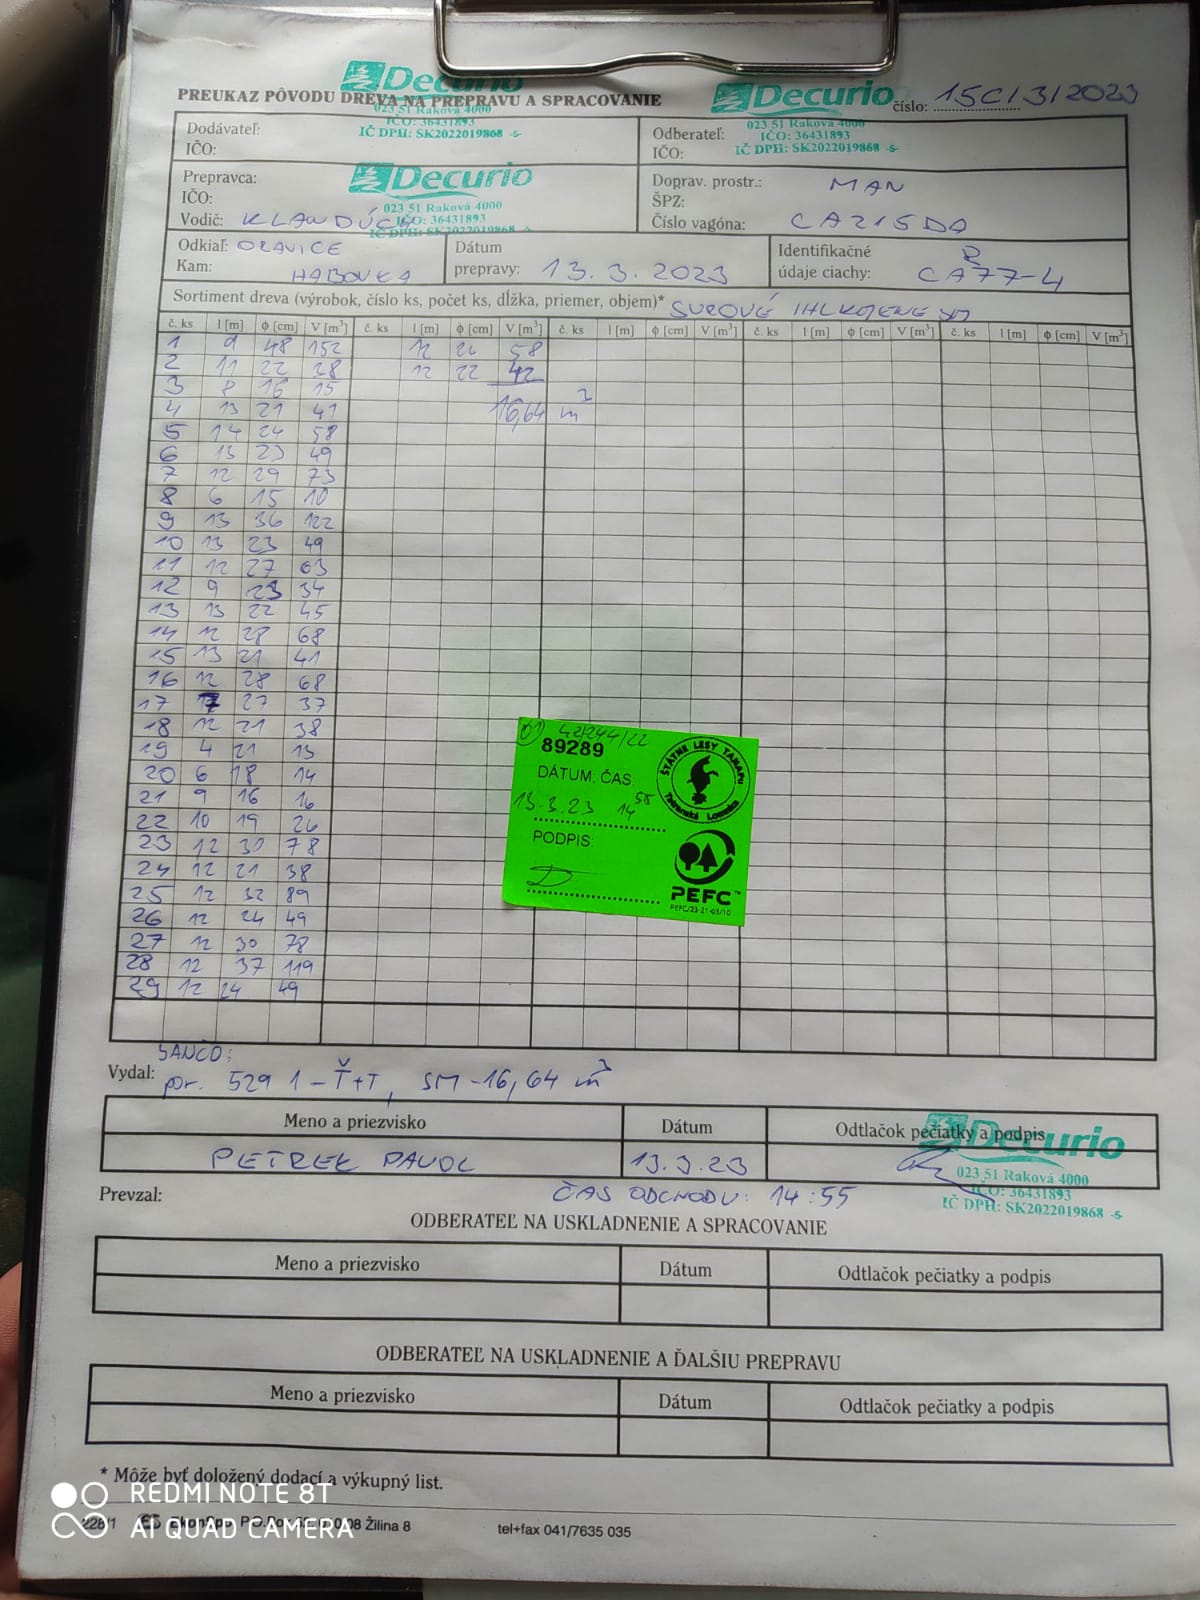 Decurio
PREUKAZ PÔVODU DREVA NA PREPRAVU A SPRACOVANIE
023 51 Raková 4000
IČO: 36431893
IČ DPH: SK2022019868 -5-
Decurio
číslo: 15C/3/2023
023 51 Raková 4000
IČO: 36431893
IČ DPH: SK2022019868 -5-
Dodávateľ:
IČO:
Odberateľ:
IČO:
Prepravca:
IČO:
Vodič: KLANDÚCH
Decurio
023 51 Raková 4000
IČO: 36431893
IČ DPH: SK2022019868 -5-
Doprav. prostr.: MAN
ŠPZ:
Číslo vagóna: CA215DA
Odkiaľ: ORAVICE
Kam: HABOVKA
Dátum
prepravy: 13. 3. 2023
Identifikačné
údaje ciachy: CA77-4
R
Sortiment dreva (výrobok, číslo ks, počet ks, dĺžka, priemer, objem)* SUROVÉ
č. ks l [m] ϕ [cm] V [m³] č. ks l [m] ϕ [cm] V [m³] č. ks l [m] ϕ [cm] V [m³] č. ks l [m] ϕ [cm] V [m³] č. ks l [m] ϕ [cm] V [m³]
1 9 48 152 12 26 58
2 11 22 38 12 22 42
3 8 16 15
4 13 21 41 16,64 m³
5 14 24 58
6 13 23 49
7 12 29 73
8 6 15 10
9 13 36 122
10 13 23 49
11 12 27 63
12 9 23 34
13 13 22 45
14 12 28 68
15 13 21 41
16 12 28 68
17 7 27 37
18 12 21 38
19 4 21 13
20 6 18 14
21 9 16 16
22 10 19 26
23 12 30 78
24 12 21 38
25 12 32 89
26 12 24 49
27 12 30 78
28 12 37 119
29 12 24 49
01 42/244/22
89289
DÁTUM, ČAS
13.3.23 14 55
PODPIS:
ŠTÁTNE LESY TANAPu
Tatranská Lomnica
PEFC™
PEFC/23-21-03/10
SANCO:
Vydal: por. 529 1 - Ť+T, SM - 16,64 m³
Meno a priezvisko Dátum Odtlačok pečiatky a podpis
PETREK PAVOL 13.3.23
Decurio
023 51 Raková 4000
IČO: 36431893
IČ DPH: SK2022019868 -5-
Prevzal:
ČAS ODCHODU: 14:55
ODBERATEĽ NA USKLADNENIE A SPRACOVANIE
Meno a priezvisko Dátum Odtlačok pečiatky a podpis
ODBERATEĽ NA USKLADNENIE A ĎALŠIU PREPRAVU
Meno a priezvisko Dátum Odtlačok pečiatky a podpis
* Môže byť doložený dodací a výkupný list.
REDMI NOTE 8T
AI QUAD CAMERA
228/1 Žilina 8 tel+fax 041/7635 035